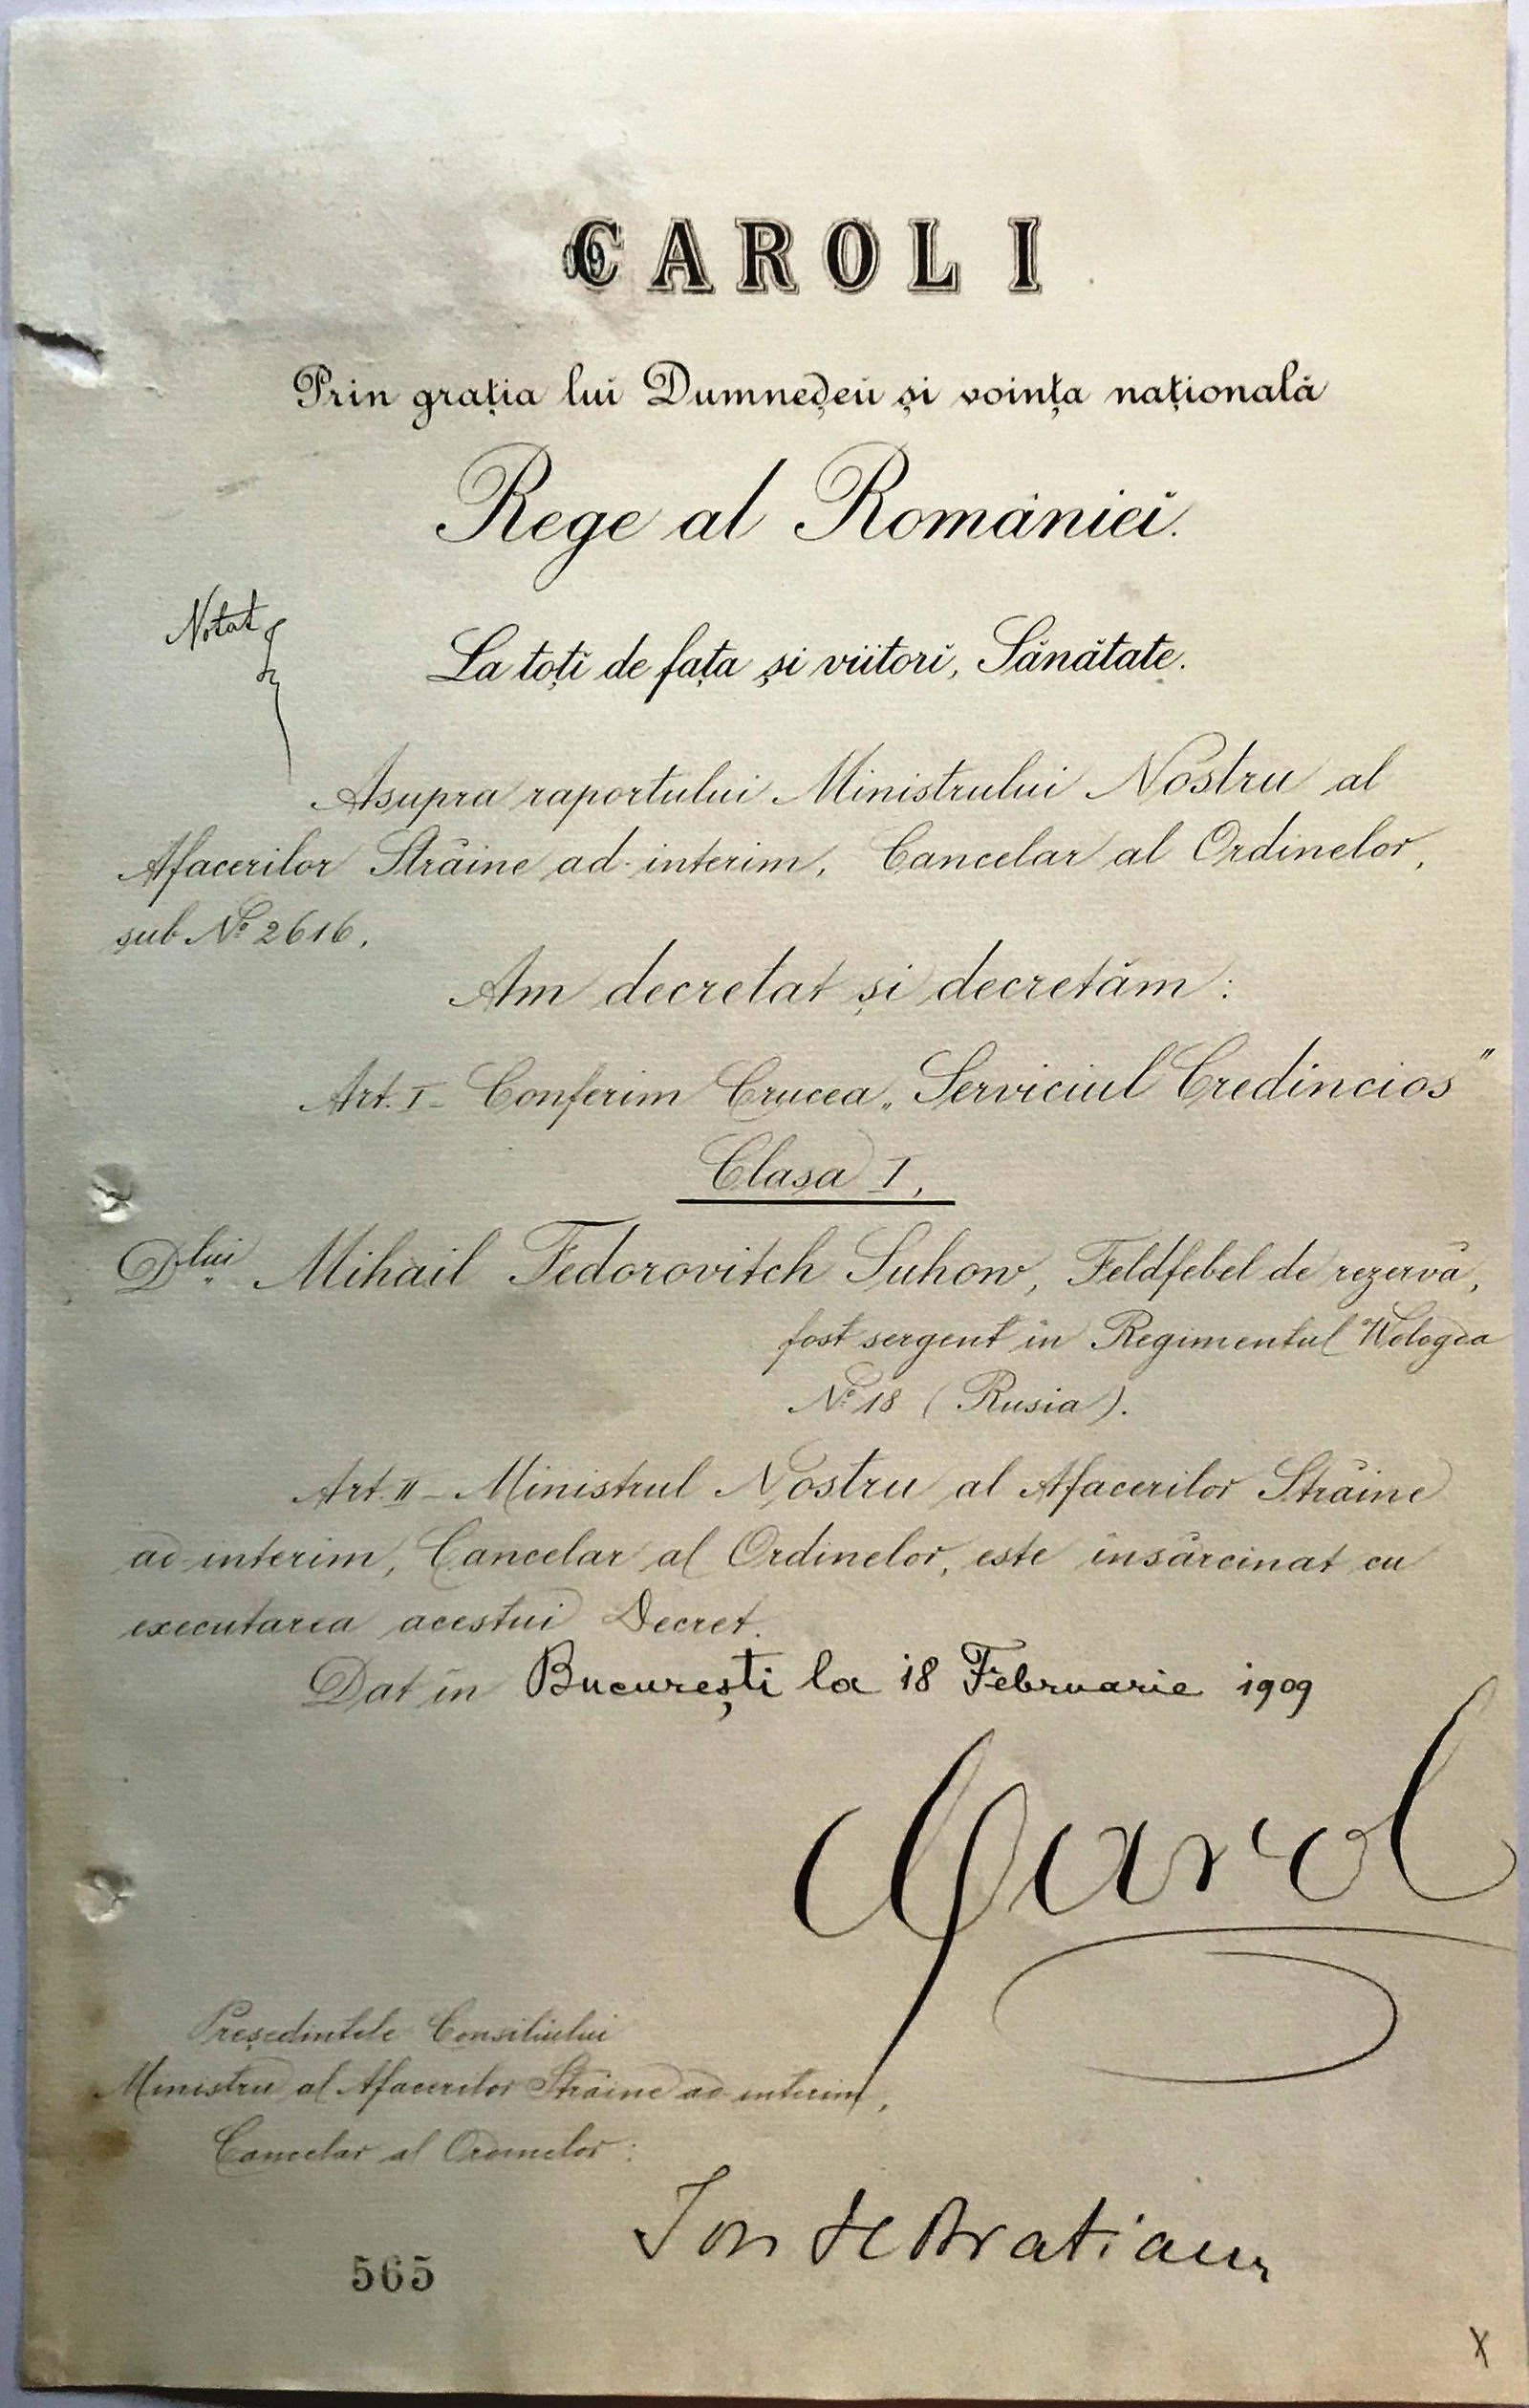 CAROL I
Prin grația lui Dumnedeu și voința națională
Rege al României.
Notat
La toți de fața și viitori, Sănătate.
Asupra raportului Ministrului Nostru al
Afacerilor Străine ad-interim, Cancelar al Ordinelor,
sub No 2616,
Am decretat și decretăm:
Art. I - Conferim Crucea „Serviciul Credincios"
Clasa I,
Dlui Mihail Fedorovitch Suhow, Feldfebel de rezervă,
fost sergent în Regimentul Wologda
No 18 (Rusia).
Art. II - Ministrul Nostru al Afacerilor Străine
ad-interim, Cancelar al Ordinelor, este însărcinat cu
executarea acestui Decret.
Dat în București la 18 Februarie 1909
Carol
Președintele Consiliului
Ministru al Afacerilor Străine ad-interim,
Cancelar al Ordinelor:
Ion I C Bratianu
565
X